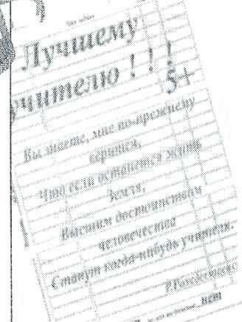 Лучшему
учителю ! ! !
5+
Вы знаете, мне по-прежнему
верится,
Что если останется жить
Земля,
Высшим достоинством
человечества
Станут когда-нибудь учителя.
Р.Рождественский
нет